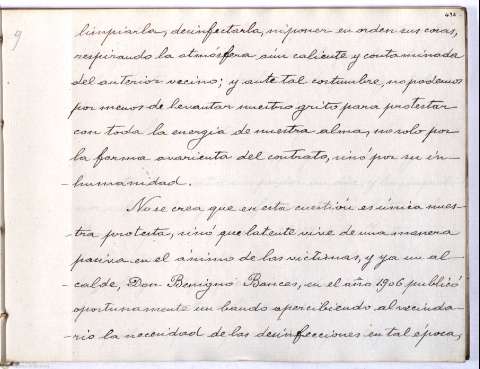 limpiarla, desinfectarla, ni poner en orden sus cosas,
respirando la atmósfera aún caliente y contaminada
del anterior vecino; y ante tal costumbre, no podemos
por menos de levantar nuestro grito para protestar
con toda la energía de nuestra alma, no solo por
la forma avarienta del contrato, sinó por su in-
-humanidad.
No se crea que en esta cuestión es única nues-
-tra protesta, sinó que latente vive de una manera
pasiva en el ánimo de las victimas, y ya un al-
-calde, Don Benigno Bances, en el año 1906 publicó
oportunamente un bando apercibiendo al vecinda-
-rio la necesidad de las desinfecciones en tal época,